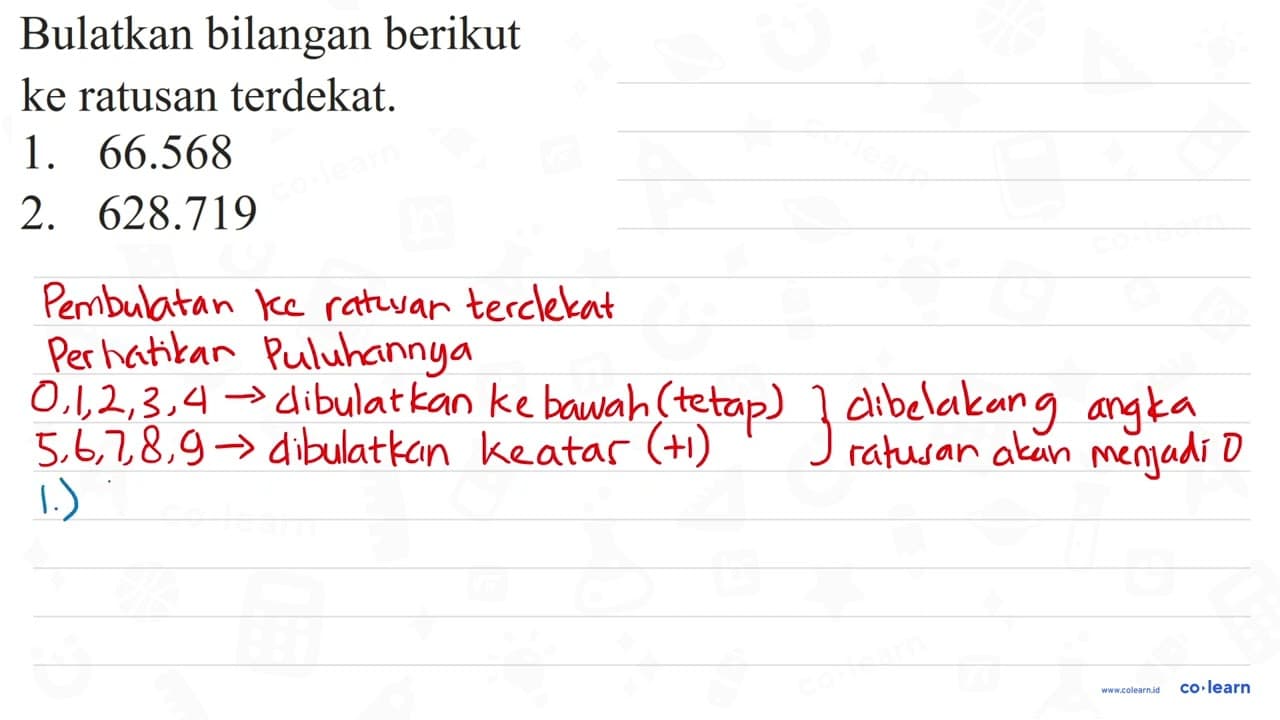 Bulatkan bilangan berikut
ke ratusan terdekat.
1. 66.568
2. 628.719
Pembulatan ke ratusan terdekat
Perhatikan Puluhannya
0,1,2,3,4 → dibulatkan ke bawah (tetap) } dibelakang angka
5,6,7,8,9 → dibulatkan keatas (+1) ratusan akan menjadi 0
1.)
www.colearn.id co·learn